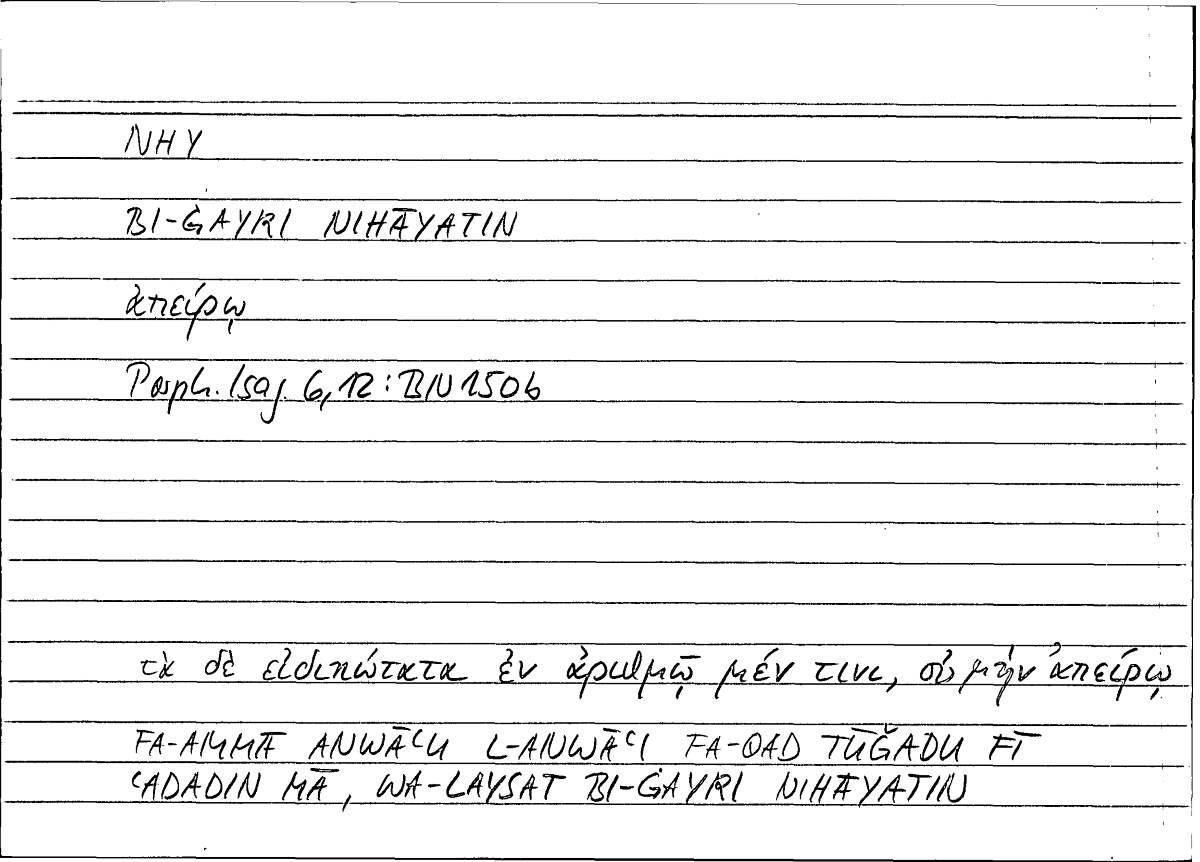 NHY
BI-ĠAYRI NIHĀYATIN
ἀπείρῳ
Porph. Isag. 6,12: BN 150b
τὰ δὲ εἰδικώτατα ἐν ἀριθμῷ μέν τινι, οὐ μὴν ἀπείρῳ
FA-AMMĀ ANWĀʿU L-ANWĀʿI FA-QAD TŪǦADU FĪ
ʿADADIN MĀ, WA-LAYSAT BI-ĠAYRI NIHĀYATIN